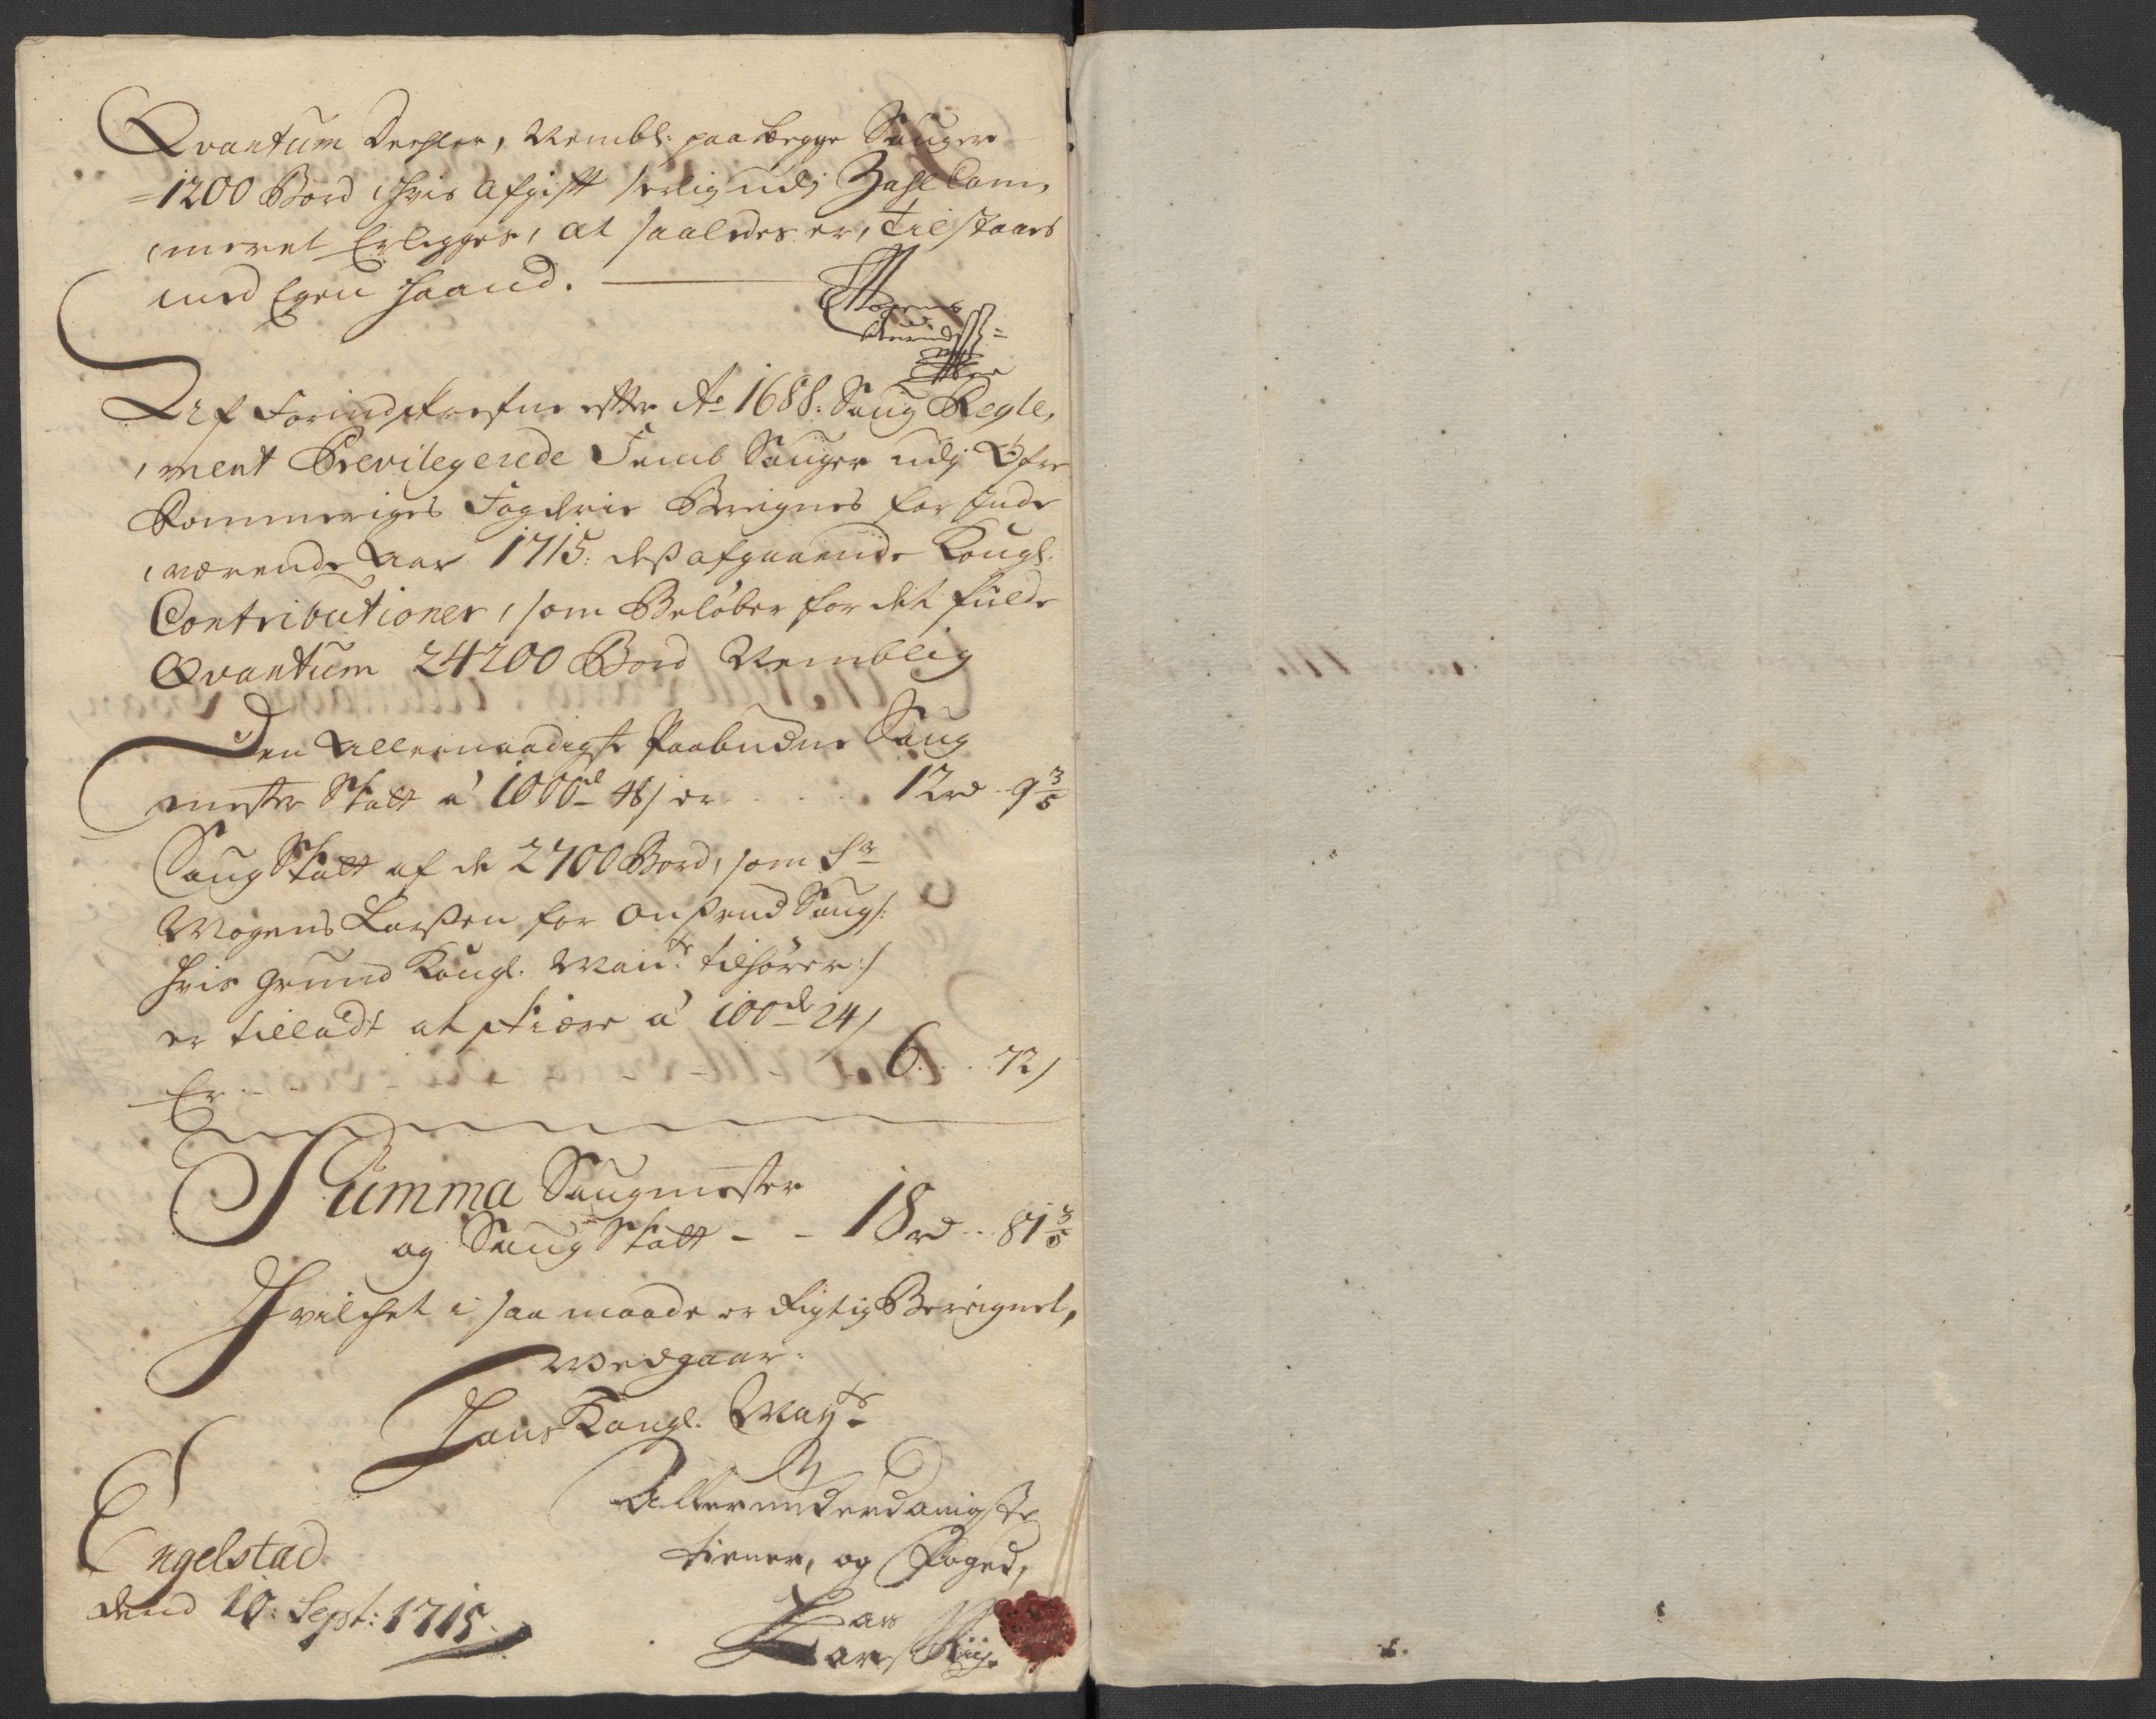 Qvantum Deehler, Nembl: paa begge Sauger
=1200 Bord, hvis Afgift serlig udj Zahl Cam,
,meret Erlegges, at saaledes er, tilstaaes
med Egen Haand.
Mogens
Af Forindskrefne efter Ao 1688: Saug Regle,
,ment Previlegerede Femb Sauger udj Øfre
Rommeriges Fogderie Bereignes for inde
,værende Aar 1715: deß afgaaende Kongl:
Contributioner, som Beløber for det fulde
Qvantum 24200 Bord Nemblig
Den Allernaadigst Paabudne Saug
mester Skatt a' 1000de 48 s er 12 rd 9 3/5
Saug Skatt af de 2700 Bord, som Sr
Mogens Larßen for Onsrud Saug /:
hvis grund Kongl. Maits tilhører :/
er tilladt at skiære a' 100de 24 s
Er 6 72 s
Summa Saugmester
og Saug Skatt - - 18 rd 81 3/5
Hvilchet i saa maade er Rigtig Bereignet,
Vedgaar.
Hans Kongl. Mayts
Allerunderdanigste
tiener, og Foged,
Engelstad
dend 10: Sept: 1715.
Lars